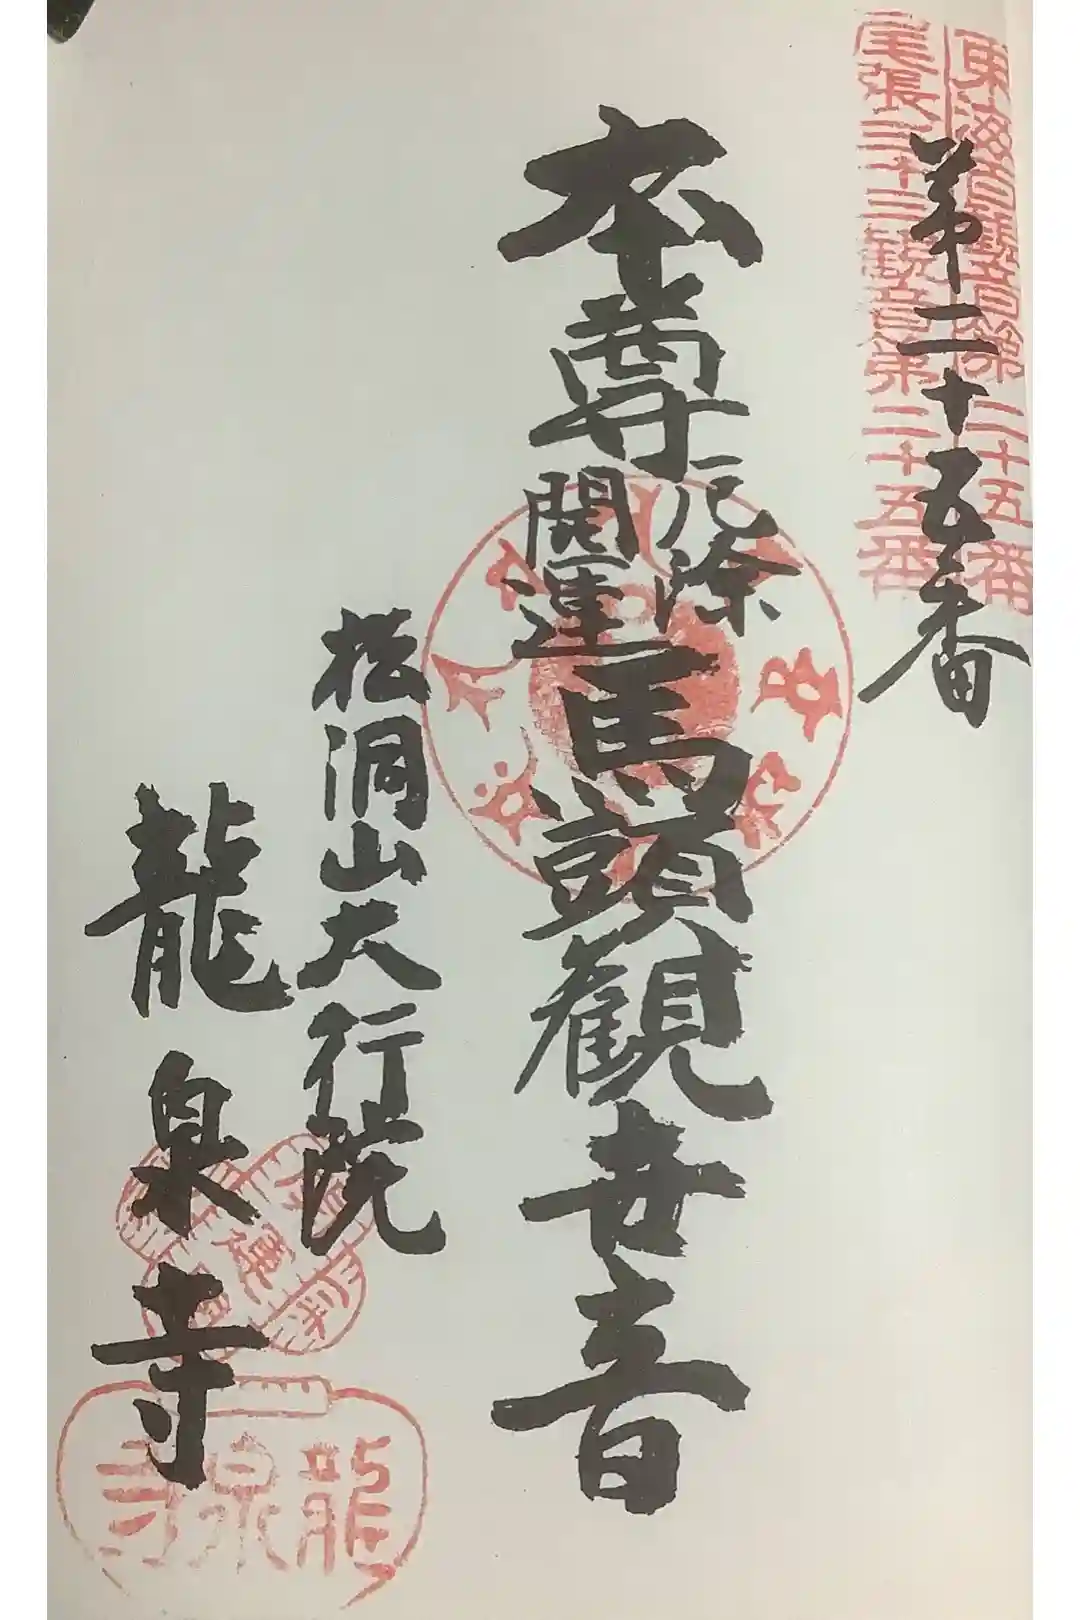 東海百観音第二十五番
尾張三十三観音第二十五番
第二十五番
本尊
厄除
開運
馬頭觀世音
松洞山大行院
龍泉寺
龍泉寺